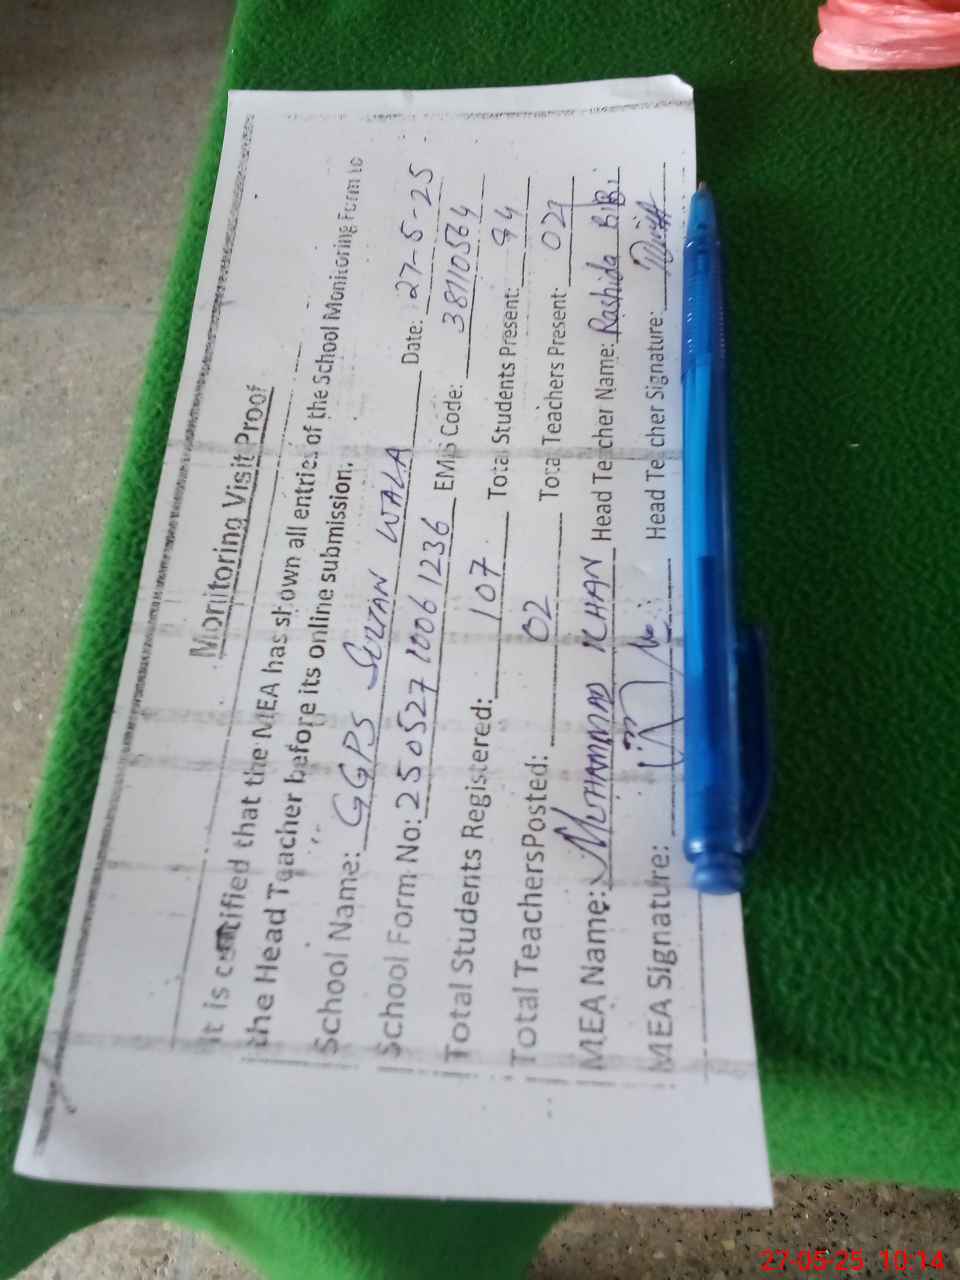 Monitoring Visit Proof
It is certified that the MEA has shown all entries of the School Monitoring Form to
the Head Teacher before its online submission.
School Name: GGPS SULTAN WALA Date: 27-5-25
School Form No: 250527 1006 1236 EMIS Code: 38110564
Total Students Registered: 107 Total Students Present: 94
Total TeachersPosted: 02 Total Teachers Present: 02
MEA Name: MUHAMMAD KHAN Head Teacher Name: Rashida BiBi
MEA Signature: Head Teacher Signature:
27-05-25 10:14